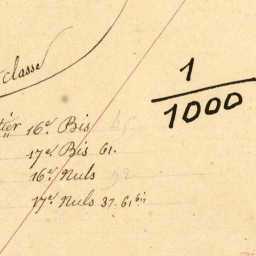 classe
1
1000
16e. Bis
17e. Bis 61.
16e. Nuls
17e. Nuls 37. 61 bis